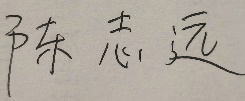 陈志远